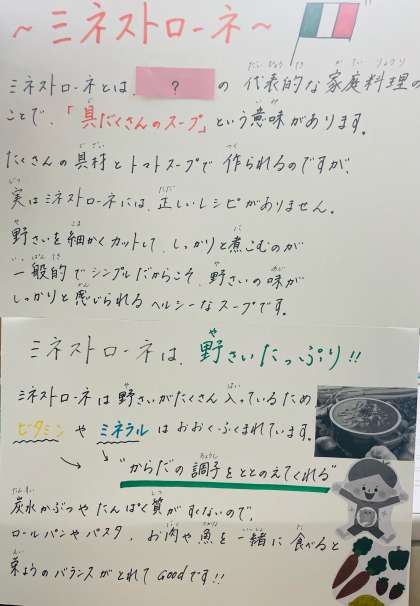 ～ミネストローネ～
ミネストローネとは、 ? の 代表的な家庭料理の
ことで、「具だくさんのスープ」という意味があります。
たくさんの具材とトマトスープで 作られるのですが、
実はミネストローネには、正しいレシピがありません。
野さいを細かくカットして、しっかりと煮こむのが
一般的でシンプルだからこそ、野さいの味が
しっかりと感じられるヘルシーなスープです。
ミネストローネは、野さいたっぷり!!
ミネストローネは野さいがたくさん入っているため
ビタミンやミネラルはおおくふくまれています。
"からだの調子をととのえてくれる"
炭水かぶつやたんぱく質がすくないので、
ロールパンやパスタ、お肉や魚を一緒に食べると
栄ようのバランスがとれてGoodです!!